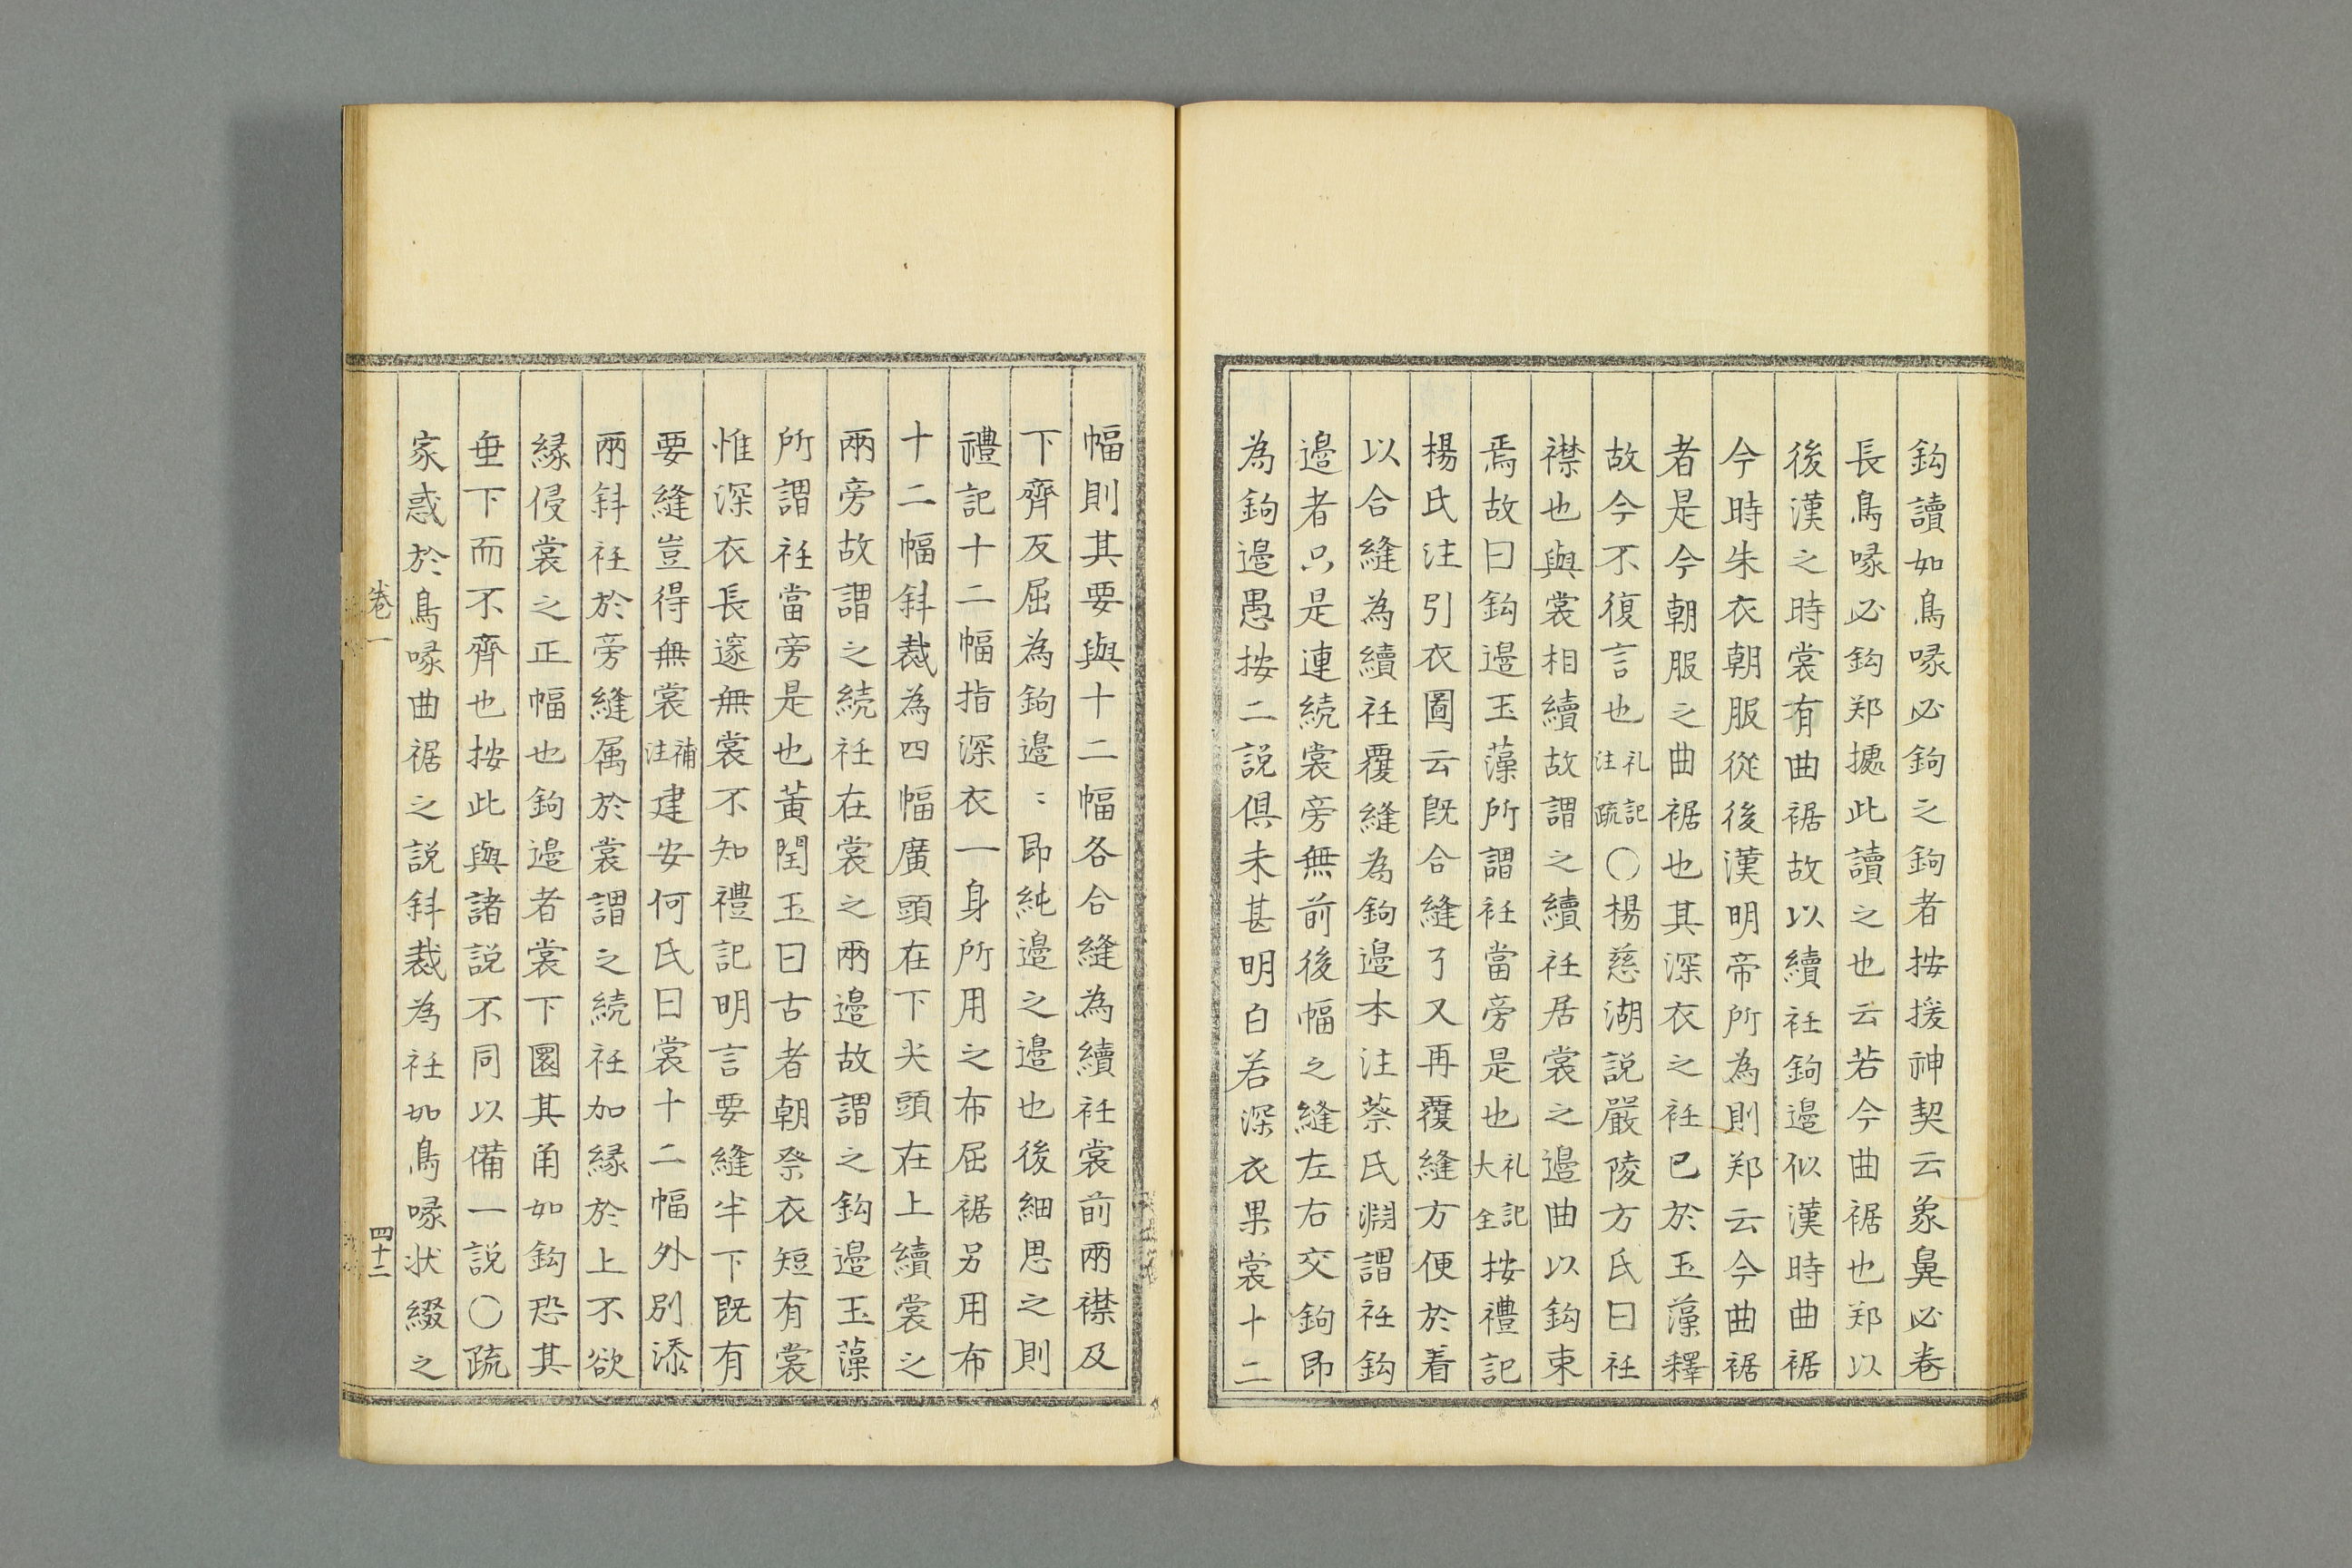 鈎讀如鳥喙必鉤之鉤者按援神契云象鼻必卷
長鳥喙必鈎郑㨿此讀之也云若今曲裾也郑以
後漢之時裳有曲裾故以續衽鉤邉似漢時曲裾
今時朱衣朝服從後漢明帝所為則郑云今曲裾
者是今朝服之曲裾也其深衣之衽已於玉藻釋
故今不復言也礼記注疏〇楊慈湖説嚴陵方氏曰衽
襟也與裳相續故謂之續衽居裳之邉曲以鈎束
焉故曰鈎邉玉藻所謂衽當旁是也礼記大全按禮記
楊氏注引衣圖云既合縫了又再覆縫方便於着
以合縫為續衽覆縫為鉤邉本注蔡氏淵謂衽鈎
邉者只是連続裳旁無前後幅之縫左右交鉤即
為鉤邉愚按二説俱未甚明白若深衣果裳十二
幅則其要與十二幅各合縫為續衽裳前兩襟及
下齊反屈為鉤邉〻即純邉之邉也後細思之則
禮記十二幅指深衣一身所用之布屈裾另用布
十二幅斜裁為四幅廣頭在下尖頭在上續裳之
兩旁故謂之続衽在裳之兩邉故謂之鈎邉玉藻
所謂衽當旁是也黄閏玉曰古者朝祭衣短有裳
惟深衣長邃無裳不知禮記明言要縫半下既有
要縫豈得無裳補注建安何氏曰裳十二幅外別添
兩斜衽於旁縫属於裳謂之続衽加緣於上不欲
緣侵裳之正幅也鉤邉者裳下圜其角如鈎恐其
垂下而不齊也按此與諸説不同以備一説〇疏
家惑於鳥喙曲裾之説斜裁為衽如鳥喙状綴之
卷一
四十二